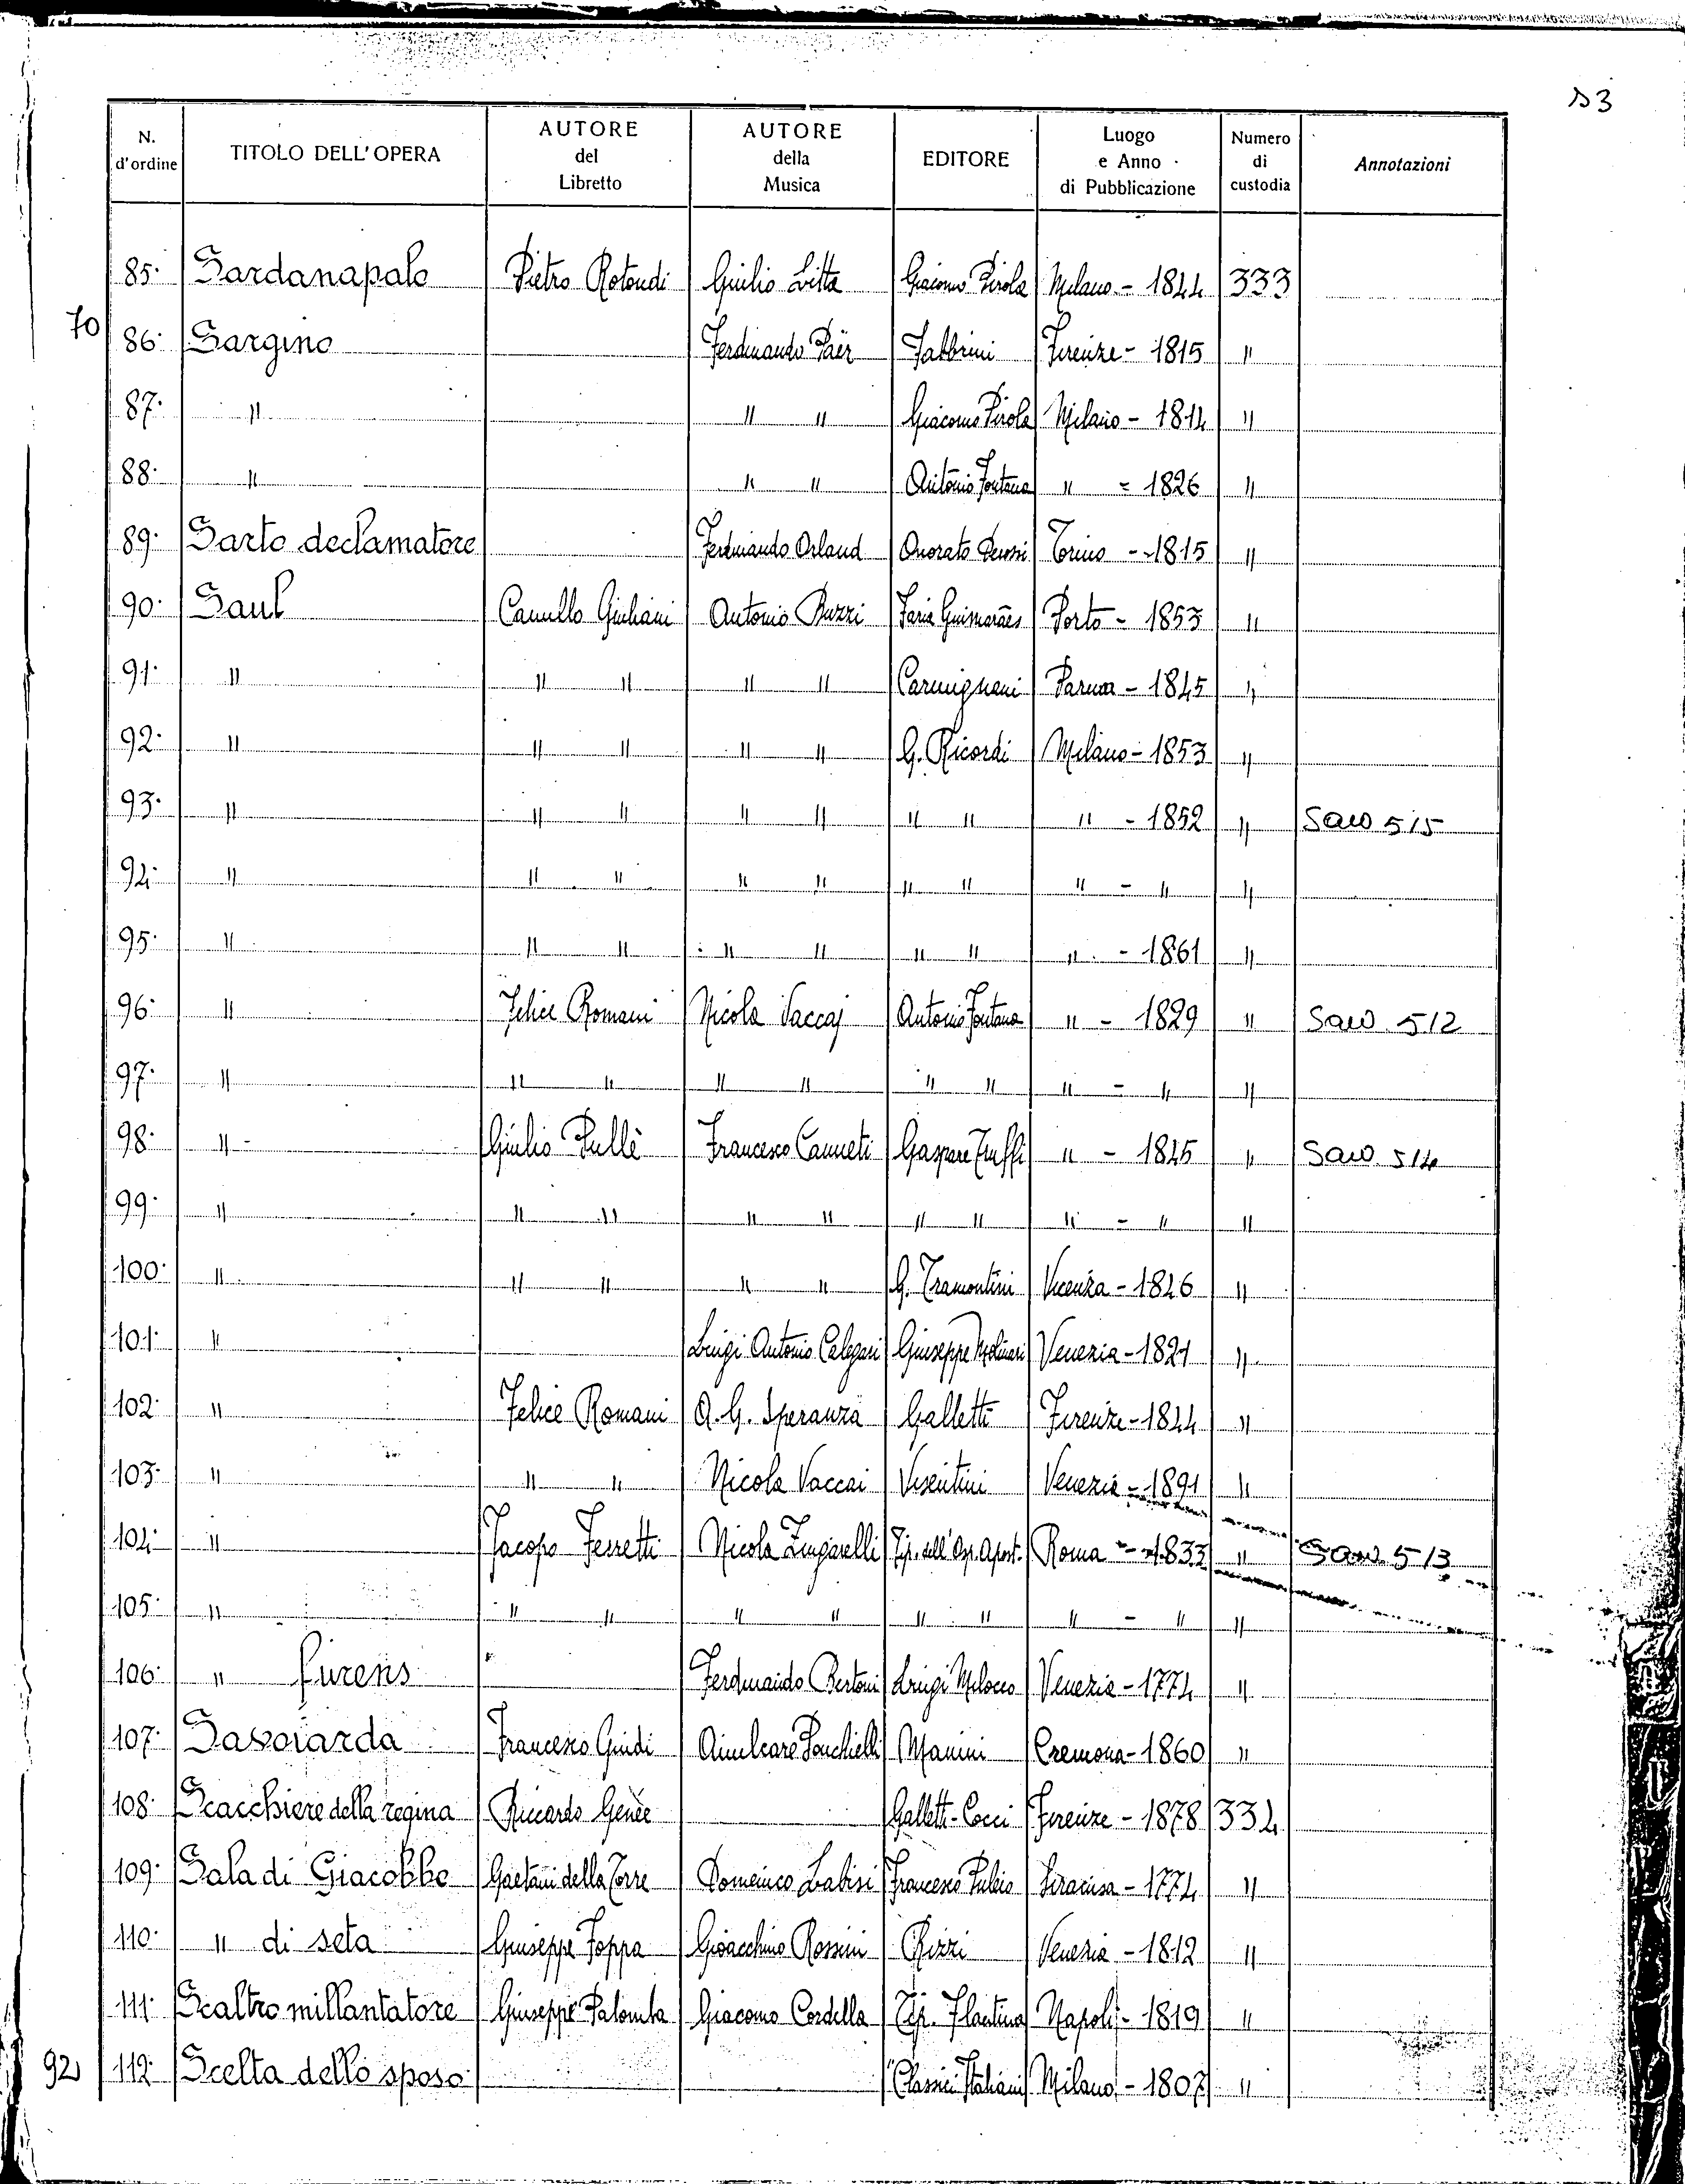 S3
N. d'ordine | TITOLO DELL'OPERA | AUTORE del Libretto | AUTORE della Musica | EDITORE | Luogo e Anno di Pubblicazione | Numero di custodia | Annotazioni
85. | Sardanapalo | Pietro Rotondi | Giulio Litta | Giacomo Pirola | Milano - 1844 | 333
70
86. | Sargino | Ferdinando Paër | Fabbrini | Firenze - 1815 | "
87. | " | " " | Giacomo Pirola | Milano - 1814 | "
88. | " | " " | Antonio Fontana | " - 1826 | "
89. | Sarto declamatore | Ferdinando Orland | Onorato Derossi | Torino - 1815 | "
90. | Saul | Camillo Giuliani | Antonio Buzzi | Faria Guimarães | Porto - 1853 | "
91. | " | " " | " " | Carmignani | Parma - 1845 | "
92. | " | " " | " " | G. Ricordi | Milano - 1853 | "
93. | " | " " | " " | " " | " - 1852 | " | 515
94. | " | " " | " " | " " | " - " | "
95. | " | " " | " " | " " | " - 1861 | "
96. | " | Felice Romani | Nicola Vaccaj | Antonio Fontana | " - 1829 | " | 512
97. | " | " " | " " | " " | " - " | "
98. | " | Giulio Pullè | Francesco Canneti | Gaspare Truffi | " - 1845 | " | 514
99. | " | " " | " " | " " | " - " | "
100. | " | " " | " " | G. Tramontini | Vicenza - 1826 | "
101. | " | Luigi Antonio Calegari | Giuseppe Molinari | Venezia - 1821 | "
102. | " | Felice Romani | A. G. Speranza | Galletti | Firenze - 1844 | "
103. | " | " " | Nicola Vaccai | Visentini | Venezia - 1891 | "
104. | " | Jacopo Ferretti | Nicola Zingarelli | Tip. dell'Osp. Apost. | Roma - 1833 | " | 513
105. | " | " " | " " | " " | " - " | "
106. | " furens | Ferdinando Bertoni | Luigi Milocco | Venezia - 1774 | "
107. | Savoiarda | Francesco Guidi | Amilcare Ponchielli | Manini | Cremona - 1860 | "
108. | Scacchiere della regina | Riccardo Genée | Galletti-Cocci | Firenze - 1878 | 334
109. | Scala di Giacobbe | Gaetani della Torre | Domenico Labisi | Francesco Pulejo | Siracusa - 1774 | "
110. | " di seta | Giuseppe Foppa | Gioacchino Rossini | Rizzi | Venezia - 1812 | "
111. | Scaltro millantatore | Giuseppe Palomba | Giacomo Cordella | Tip. Flautina | Napoli - 1819 | "
92
112. | Scelta dello sposo | Classici Italiani | Milano - 1807 | "